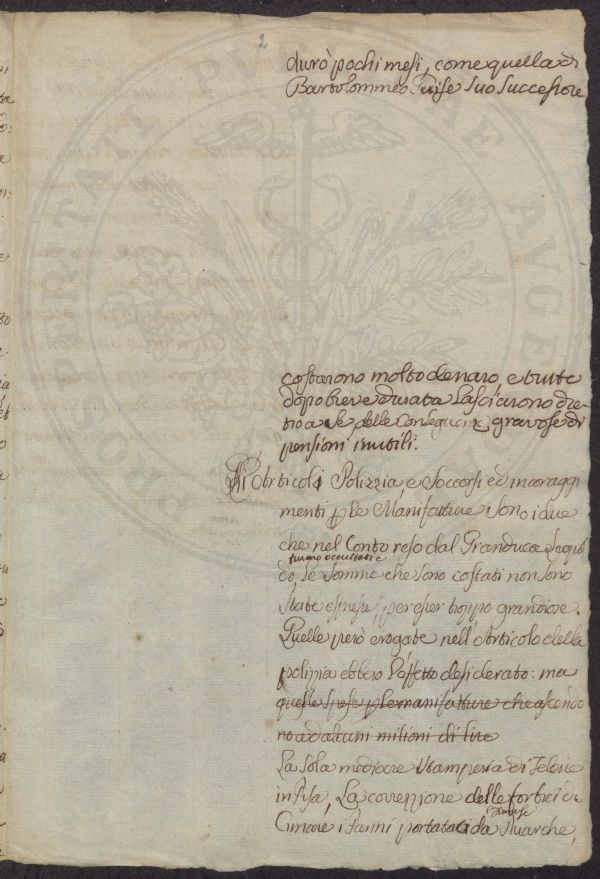 2
durò pochi mesi, come quella di
Bartolommeo suo successore
PROSPERITATI PVBLICAE AVGENDAE
costarono molto denaro, e tutte
dopo breve durata lasciarono die-
tro a se delle conseguenze gravose di
pensioni inutili.
Gli Articoli Polizzia e Soccorsi ed incoraggi
menti p le Manifatture sono i due
che nel Conto reso dal Granduca Leopol
furono occultati e
do, le somme che sono costati non sono
state espresse, per esser troppo grandiose.
Quelle però erogate nell'Articolo della
polizzia ebbero l'effetto desiderato: ma
quelle spese p le manifatture che ascendo
no ad alcuni milioni di lire
La sola mediocre stamperia di Telerie
in Pisa, La correzzione delle forbici da
Cimare i Panni portatati da